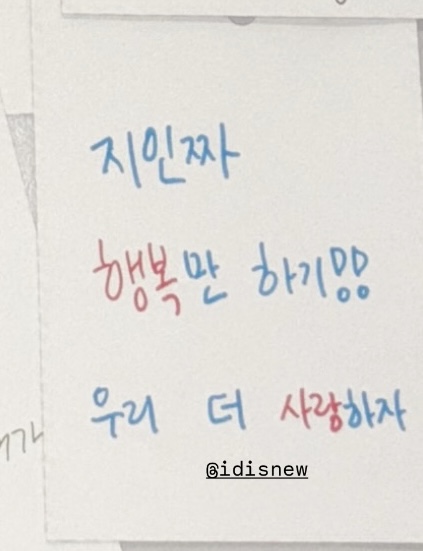 지인짜
행복만 하기!!
우리 더 사랑하자
@idisnew